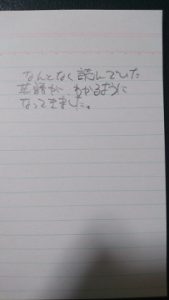 なんとなく読んでいた
英語が わかるように
なってきました。